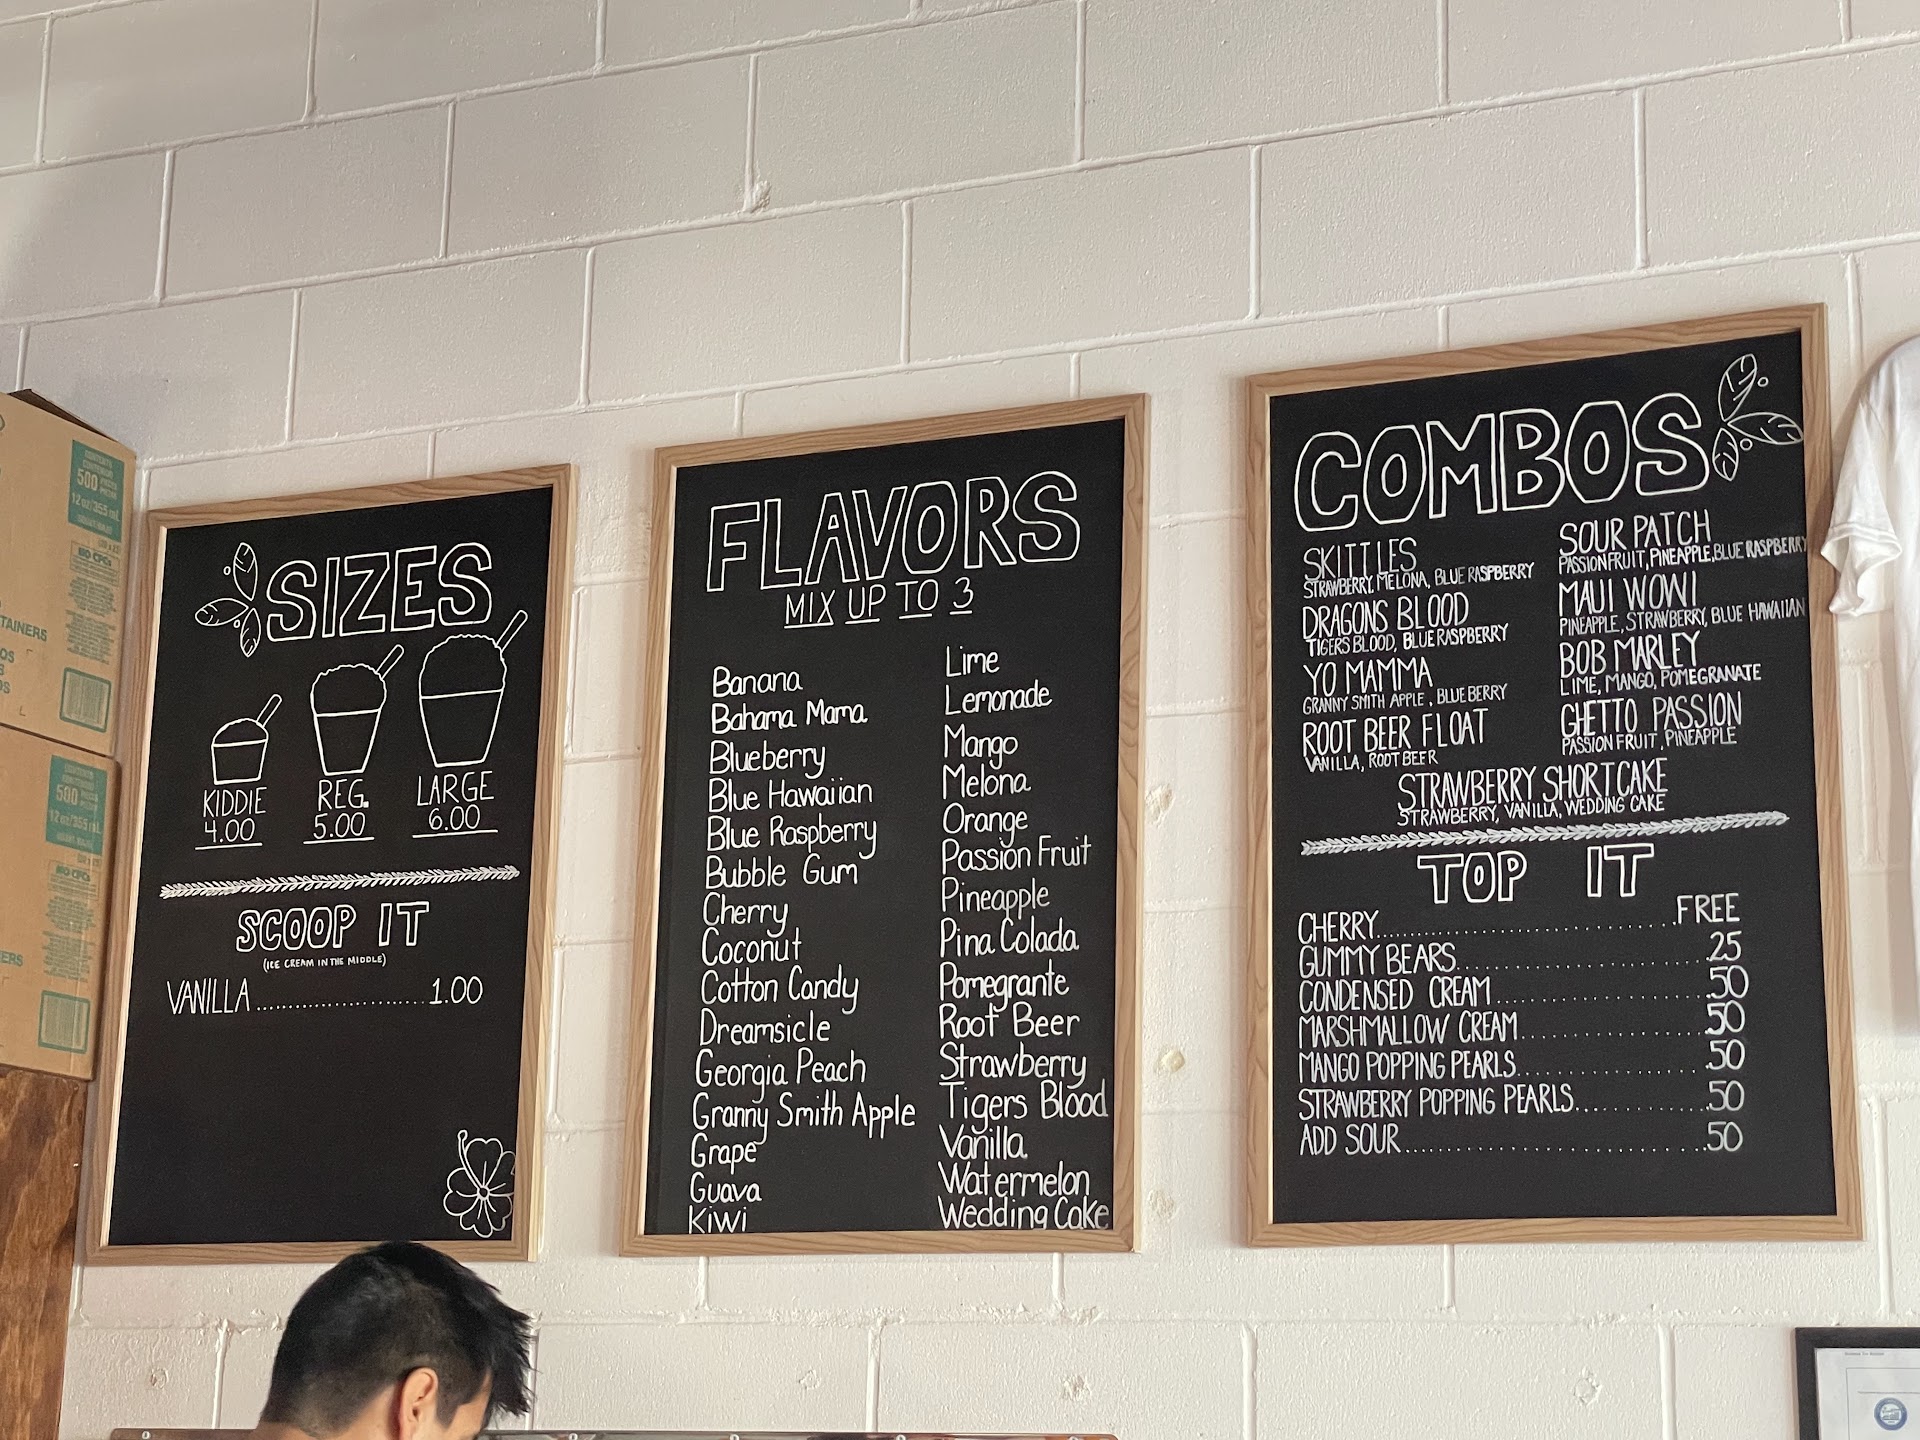 CONTENTS
500 PIECES
12 oz/355 mL
NO CFCs
TAINERS
500
12 oz/355 mL
NO CFCs
ERS
SIZES
KIDDIE
4.00
REG.
5.00
LARGE
6.00
SCOOP IT
(ICE CREAM IN THE MIDDLE)
VANILLA........................1.00
FLAVORS
MIX UP TO 3
Banana
Bahama Mama
Blueberry
Blue Hawaiian
Blue Raspberry
Bubble Gum
Cherry
Coconut
Cotton Candy
Dreamsicle
Georgia Peach
Granny Smith Apple
Grape
Guava
Kiwi
Lime
Lemonade
Mango
Melona
Orange
Passion Fruit
Pineapple
Pina Colada
Pomegrante
Root Beer
Strawberry
Tigers Blood
Vanilla
Watermelon
Wedding Cake
COMBOS
SKITTLES
STRAWBERRY, MELONA, BLUE RASPBERRY
DRAGONS BLOOD
TIGERS BLOOD, BLUE RASPBERRY
YO MAMMA
GRANNY SMITH APPLE, BLUEBERRY
ROOT BEER FLOAT
VANILLA, ROOT BEER
SOUR PATCH
PASSIONFRUIT, PINEAPPLE, BLUE RASPBERRY
MAUI WOWI
PINEAPPLE, STRAWBERRY, BLUE HAWAIIAN
BOB MARLEY
LIME, MANGO, POMEGRANATE
GHETTO PASSION
PASSION FRUIT, PINEAPPLE
STRAWBERRY SHORTCAKE
STRAWBERRY, VANILLA, WEDDING CAKE
TOP IT
CHERRY..................................FREE
GUMMY BEARS..............................25
CONDENSED CREAM..........................50
MARSHMALLOW CREAM........................50
MANGO POPPING PEARLS.....................50
STRAWBERRY POPPING PEARLS................50
ADD SOUR.................................50